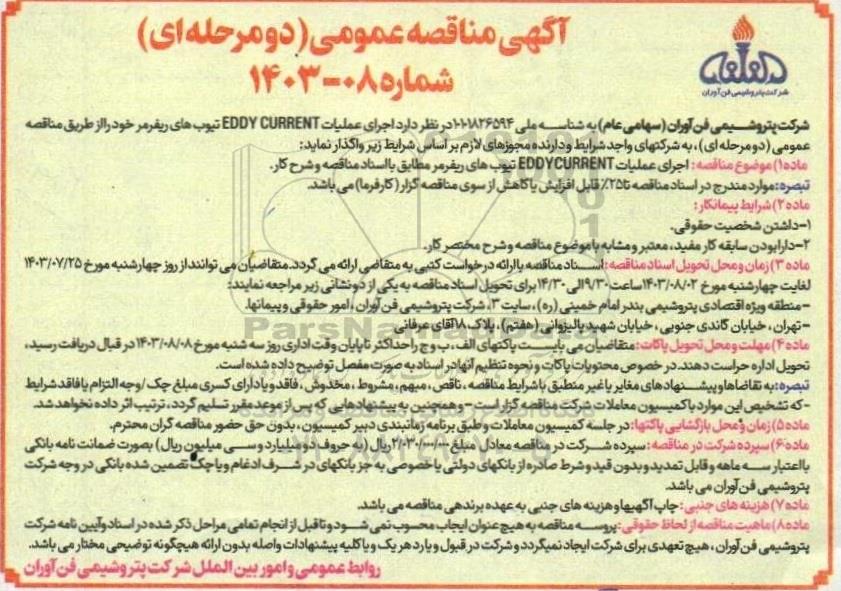 آگهی مناقصه عمومی (دو مرحله ای)
شماره ۰۸-۱۴۰۳
شرکت پتروشیمی فن آوران
شرکت پتروشیمی فن آوران (سهامی عام) به شناسه ملی ۱۰۱۰۱۸۲۶۵۹۴ در نظر دارد اجرای عملیات EDDY CURRENT تیوب های ریفرمر خود را از طریق مناقصه
عمومی (دو مرحله ای)، به شرکتهای واجد شرایط و دارنده مجوزهای لازم بر اساس شرایط زیر واگذار نماید:
ماده۱) موضوع مناقصه: اجرای عملیات EDDY CURRENT تیوب های ریفرمر مطابق با اسناد مناقصه و شرح کار.
تبصره: موارد مندرج در اسناد مناقصه تا ۲۵٪ قابل افزایش یا کاهش از سوی مناقصه گزار (کارفرما) می باشد.
ماده۲) شرایط پیمانکار:
۱-داشتن شخصیت حقوقی.
۲-دارا بودن سابقه کار مفید، معتبر و مشابه با موضوع مناقصه و شرح مختصر کار.
ماده۳) زمان و محل تحویل اسناد مناقصه: اسناد مناقصه با ارائه درخواست کتبی به متقاضی ارائه می گردد. متقاضیان می توانند از روز چهارشنبه مورخ ۱۴۰۳/۰۷/۲۵
لغایت چهارشنبه مورخ ۱۴۰۳/۰۸/۰۲ ساعت ۹/۳۰ الی ۱۴/۳۰ برای تحویل اسناد مناقصه به یکی از دو نشانی زیر مراجعه نمایند:
-منطقه ویژه اقتصادی پتروشیمی بندر امام خمینی (ره)، سایت ۳، شرکت پتروشیمی فن آوران، امور حقوقی و پیمانها.
-تهران، خیابان گاندی جنوبی، خیابان شهید پالیزوانی (هفتم)، پلاک ۱۸ آقای عرفانی
ماده۴) مهلت و محل تحویل پاکات: متقاضیان می بایست پاکتهای الف، ب و ج را حداکثر تا پایان وقت اداری روز سه شنبه مورخ ۱۴۰۳/۰۸/۰۸ در قبال دریافت رسید،
تحویل اداره حراست دهند. در خصوص محتویات پاکات و نحوه تنظیم آنها در اسناد به صورت مفصل توضیح داده شده است.
تبصره: به تقاضاها و پیشنهادهای مغایر یا غیر منطبق با شرایط مناقصه، ناقص، مبهم، مشروط، مخدوش، فاقد و یا دارای کسری مبلغ چک / وجه التزام یا فاقد شرایط
-که تشخیص این موارد با کمیسیون معاملات شرکت مناقصه گزار است- و همچنین به پیشنهادهایی که پس از موعد مقرر تسلیم گردد، ترتیب اثر داده نخواهد شد.
ماده۵) زمان و محل بازگشایی پاکتها: در جلسه کمیسیون معاملات و طبق برنامه زمانبندی دبیر کمیسیون، بدون حق حضور مناقصه گران محترم.
ماده۶) سپرده شرکت در مناقصه: سپرده شرکت در مناقصه معادل مبلغ ۲/۰۳۰/۰۰۰/۰۰۰ ریال (به حروف دو میلیارد و سی میلیون ریال) بصورت ضمانت نامه بانکی
با اعتبار سه ماهه و قابل تمدید و بدون قید و شرط صادره از بانکهای دولتی یا خصوصی به جز بانکهای در شرف ادغام و یا چک تضمین شده بانکی در وجه شرکت
پتروشیمی فن آوران می باشد.
ماده۷) هزینه های جنبی: چاپ آگهیها و هزینه های جنبی به عهده برنده ی مناقصه می باشد.
ماده۸) ماهیت مناقصه از لحاظ حقوقی: پروسه مناقصه به هیچ عنوان ایجاب محسوب نمی شود و تا قبل از انجام تمامی مراحل ذکر شده در اسناد و آیین نامه شرکت
پتروشیمی فن آوران، هیچ تعهدی برای شرکت ایجاد نمیگردد و شرکت در قبول و یا رد هر یک و یا کلیه پیشنهادات واصله بدون ارائه هیچگونه توضیحی مختار می باشد.
روابط عمومی و امور بین الملل شرکت پتروشیمی فن آوران